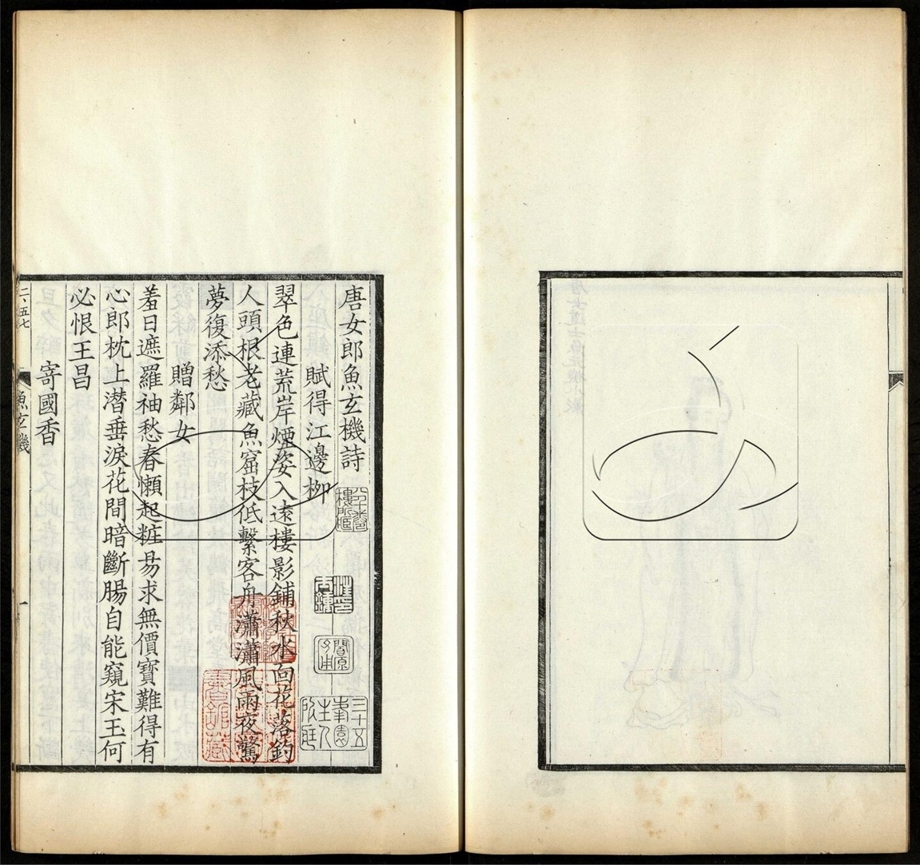 唐女郎魚玄機詩
賦得江邊栁
翠色連荒岸煙姿入遠樓影鋪秋水面花落釣
人頭根老藏魚窟枝低繫客舟瀟瀟風雨夜驚
夢復添愁
贈鄰女
羞日遮羅袖愁春懶起粧昜求無價寶難得有
心郎枕上潜垂淚花間暗斷腸自能窺宋玉何
必恨王昌
寄國香
魚玄機
一